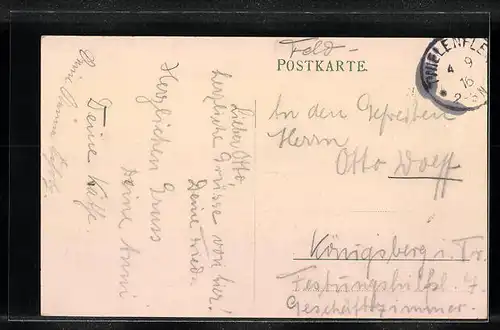 Feld-
POSTKARTE.
THIELENPLATZ
4 9
16
2-3 N
An den Gefreiten
Herrn
Otto Wolff
Königsberg i. Pr.
Festungshilfsl. 7.
Geschäftszimmer.
Lieber Otto,
herzliche Grüsse von hier!
Deine Fried.
Herzlichen Gruss
Deine Anni
Deine Käthe.